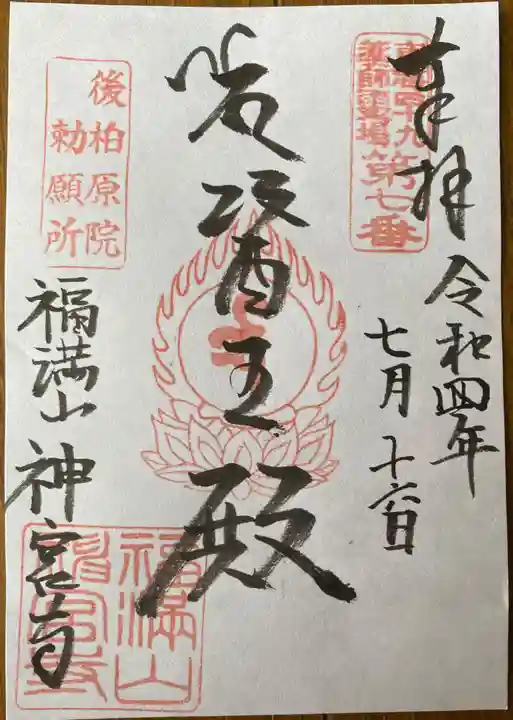 奉拝
東海四十九
薬師霊場
第七番
令和四年
七月十六日
醫王殿
後柏原院
勅願所
福満山 神宮寺
福滿山
神宮寺